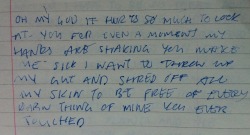 OH MY GOD IT HURTS SO MUCH TO LOOK
AT YOU FOR EVEN A MOMENT MY
HANDS ARE SHAKING YOU MAKE
ME SICK I WANT TO THROW UP
MY GUT AND SHRED OFF ALL
MY SKIN TO BE FREE OF EVERY
DAMN THING OF MINE YOU EVER
TOUCHED